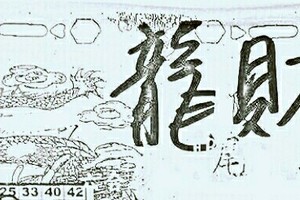 龍財
25 33 40 42